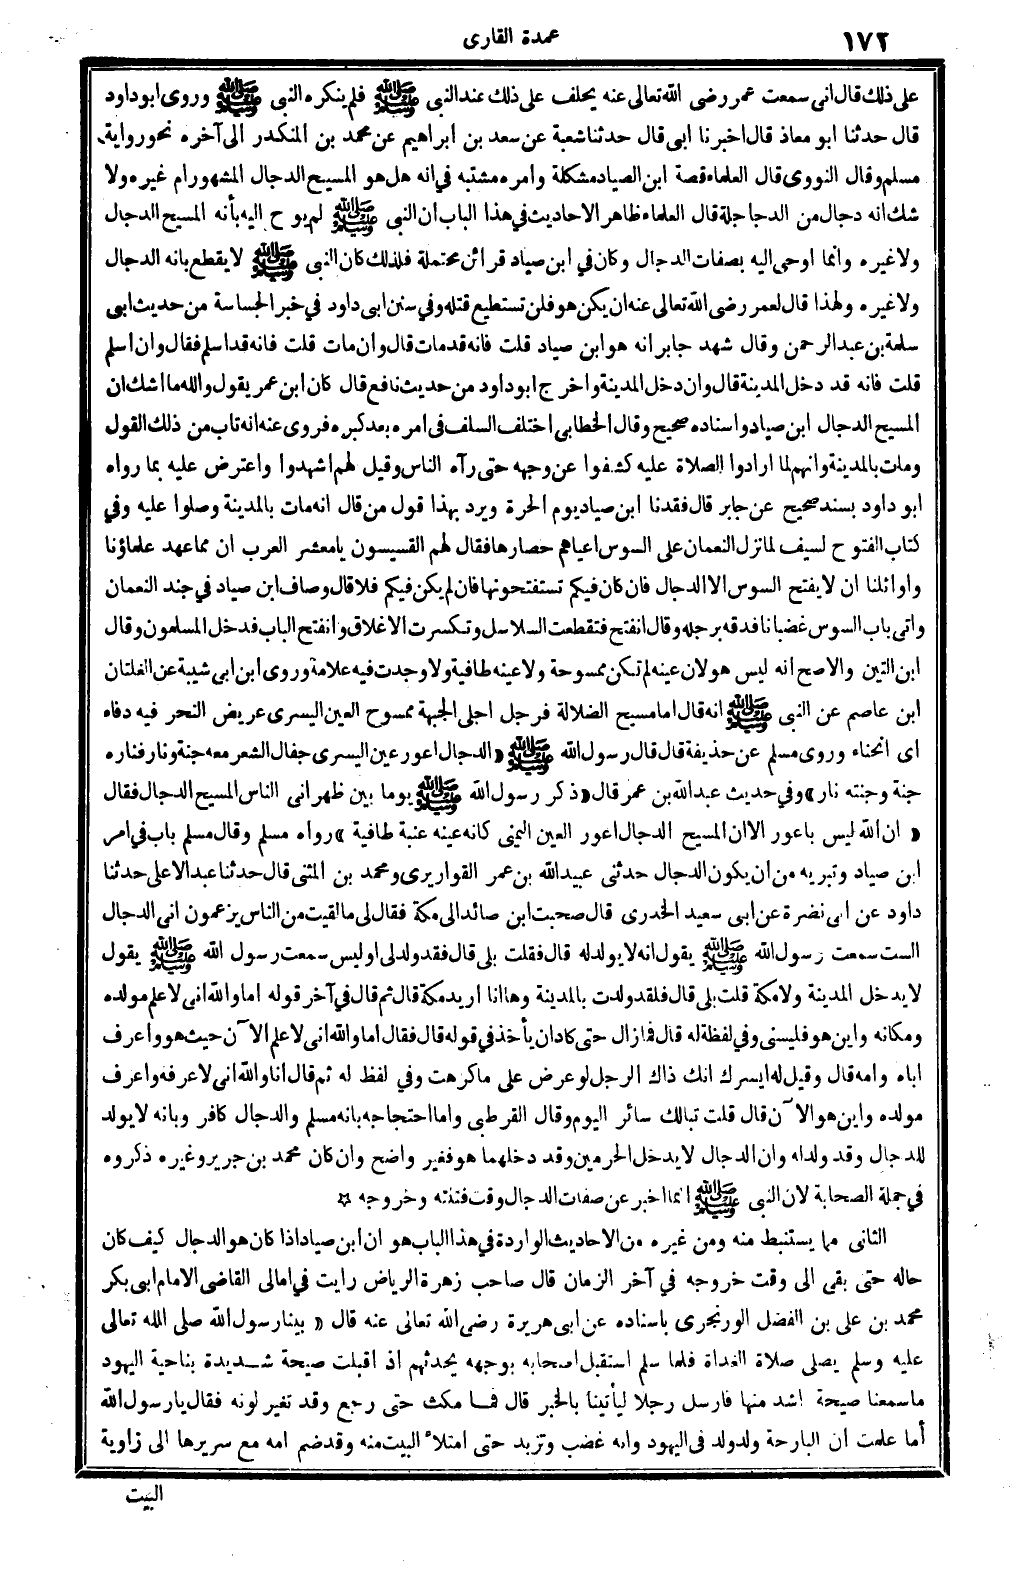 ١٧٢
عمدة القارى
على ذلك قال انى سمعت عمر رضى الله تعالى عنه يحلف على ذلك عند النبى ﷺ فلم ينكره النبى ﷺ وروى ابو داود
قال حدثنا ابو معاذ قال اخبرنا ابى قال حدثنا شعبة عن سعد بن ابراهيم عن محمد بن المنكدر الى آخره نحو رواية
مسلم وقال النووى قال العلماء قصة ابن الصياد مشكلة وامره مشتبه فى انه هل هو المسيح الدجال المشهور ام غيره ولا
شك انه دجال من الدجاجلة قال العلماء ظاهر الاحاديث فى هذا الباب ان النبى ﷺ لم يوح اليه بأنه المسيح الدجال
ولا غيره وانما اوحى اليه بصفات الدجال وكان فى ابن صياد قرائن محتملة فلذلك كان النبى ﷺ لا يقطع بانه الدجال
ولا غيره ولهذا قال لعمر رضى الله تعالى عنه ان يكن هو فلن تستطيع قتله وفى سنن ابى داود فى خبر الجساسة من حديث ابى
سلمة بن عبد الرحمن وقال شهد جابر انه هو ابن صياد قلت فانه قد مات قال وان مات قلت فانه قد اسلم فقال وان اسلم
قلت فانه قد دخل المدينة قال وان دخل المدينة واخرج ابو داود من حديث نافع قال كان ابن عمر يقول والله ما اشك ان
المسيح الدجال ابن صياد واسناده صحيح وقال الخطابى اختلف السلف فى امره بعد كبره فروى عنه انه تاب من ذلك القول
ومات بالمدينة وانهم لما ارادوا الصلاة عليه كشفوا عن وجهه حتى رآه الناس وقيل لهم اشهدوا واعترض عليه بما رواه
ابو داود بسند صحيح عن جابر قال فقدنا ابن صياد يوم الحرة ويرد بهذا قول من قال انه مات بالمدينة وصلوا عليه وفى
كتاب الفتوح لسيف لما نزل النعمان على السوس اعياهم حصارها فقال لهم القسيسون يا معشر العرب ان مما عهد علماؤنا
واوائلنا ان لا يفتح السوس الا الدجال فان كان فيكم تستفتحونها فان لم يكن فيكم فلا قال وصاف ابن صياد فى جند النعمان
واتى باب السوس غضبانا فدقه برجله وقال انفتح فتقطعت السلاسل وتكسرت الاغلاق وانفتح الباب فدخل المسلمون وقال
ابن التين والاصح انه ليس هو لان عينه لم تكن ممسوحة ولا عينه طافية ولا وجدت فيه علامة وروى ابن ابى شيبة عن الفلتان
ابن عاصم عن النبى ﷺ انه قال اما مسيح الضلالة فرجل اجلى الجبهة ممسوح العين اليسرى عريض النحر فيه دفاه
اى انحناء وروى مسلم عن حذيفة قال قال رسول الله ﷺ «الدجال اعور عين اليسرى جفال الشعر معه جنة ونار فناره
جنة وجنته نار» وفى حديث عبد الله بن عمر قال «ذكر رسول الله ﷺ يوما بين ظهرانى الناس المسيح الدجال فقال
« ان الله ليس باعور الا ان المسيح الدجال اعور العين اليمنى كانه عينه عنبة طافية » رواه مسلم وقال مسلم باب فى امر
ابن صياد وتبريه من ان يكون الدجال حدثنى عبيد الله بن عمر القواريرى ومحمد بن المثنى قال حدثنا عبد الاعلى حدثنا
داود عن ابى نضرة عن ابى سعيد الخدرى قال صحبت ابن صائد الى مكة فقال لى ما لقيت من الناس يزعمون انى الدجال
الست سمعت رسول الله ﷺ يقول انه لا يولد له قال فقلت بلى قال فقد ولد لى او ليس سمعت رسول الله ﷺ يقول
لا يدخل المدينة ولا مكة قلت بلى قال فلقد ولدت بالمدينة وها انا اريد مكة قال ثم قال فى آخر قوله اما والله انى لا علم مولده
ومكانه واين هو فلبسنى وفى لفظة له قال فما زال حتى كاد ان يأخذ فى قوله قال فقال اما والله انى لا علم الآن حيث هو واعرف
اباه وامه قال وقيل له ايسرك انك ذاك الرجل لو عرض على ما كرهت وفى لفظ له ثم قال انا والله انى لا عرفه واعرف
مولده واين هو الآن قال قلت تبالك سائر اليوم وقال القرطبى واما احتجاجه بانه مسلم والدجال كافر وبانه لا يولد
للدجال وقد ولد له وان الدجال لا يدخل الحرمين وقد دخلهما هو فغير واضح وان كان محمد بن جرير وغيره ذكروه
فى جملة الصحابة لان النبى ﷺ انما اخبر عن صفات الدجال وقت فتنته وخروجه ☆
الثانى مما يستنبط منه ومن غيره من الاحاديث الواردة فى هذا الباب هو ان ابن صياد اذا كان هو الدجال كيف كان
حاله حتى بقى الى وقت خروجه فى آخر الزمان قال صاحب زهرة الرياض رايت فى امالى القاضى الامام ابى بكر
محمد بن على بن الفضل الورنجرى باسناده عن ابى هريرة رضى الله تعالى عنه قال « بينا رسول الله صلى الله تعالى
عليه وسلم يصلى صلاة الغداة فلما سلم استقبل اصحابه بوجهه يحدثهم اذ اقبلت صيحة شديدة بناحية اليهود
ما سمعنا صيحة اشد منها فارسل رجلا ليأتينا بالخبر قال فما مكث حتى رجع وقد تغير لونه فقال يا رسول الله
أما علمت ان البارحة ولد ولد فى اليهود وانه غضب وتزبد حتى امتلأ البيت منه وقد ضم امه مع سريرها الى زاوية
البيت